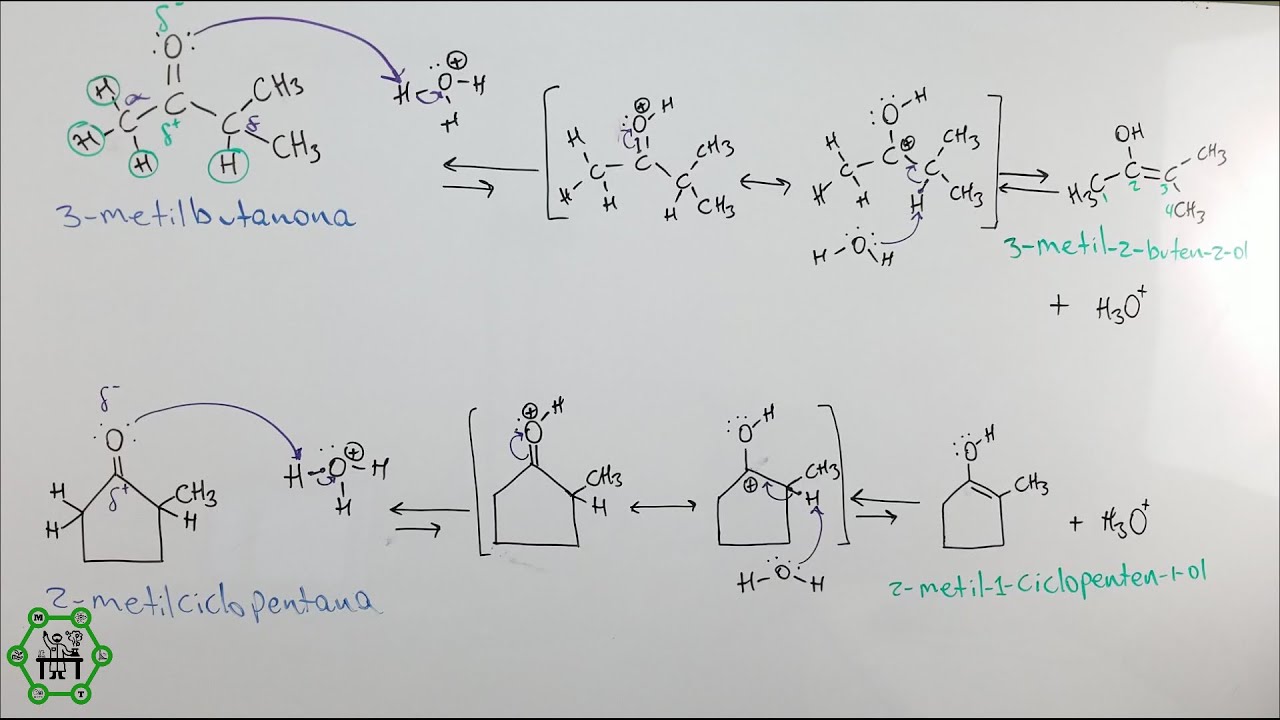 δ-
:O:
H H H α C C δ+ C δ H CH3 CH3
H O ⊕ H H
3-metilbutanona
H H H C O ⊕ H C C H CH3 CH3
H H H C :O: H C ⊕ C H CH3 CH3
H O H
OH
H3C C C CH3
1 2 3 4 CH3
3-metil-2-buten-2-ol
+ H3O+
δ-
:O:
H H δ+ CH3 H
H O ⊕ H H
O ⊕ H CH3 H
:O: H ⊕ CH3 H
H O H
:O: H CH3
+ H3O+
2-metilciclopentana
2-metil-1-ciclopenten-1-ol
M
T